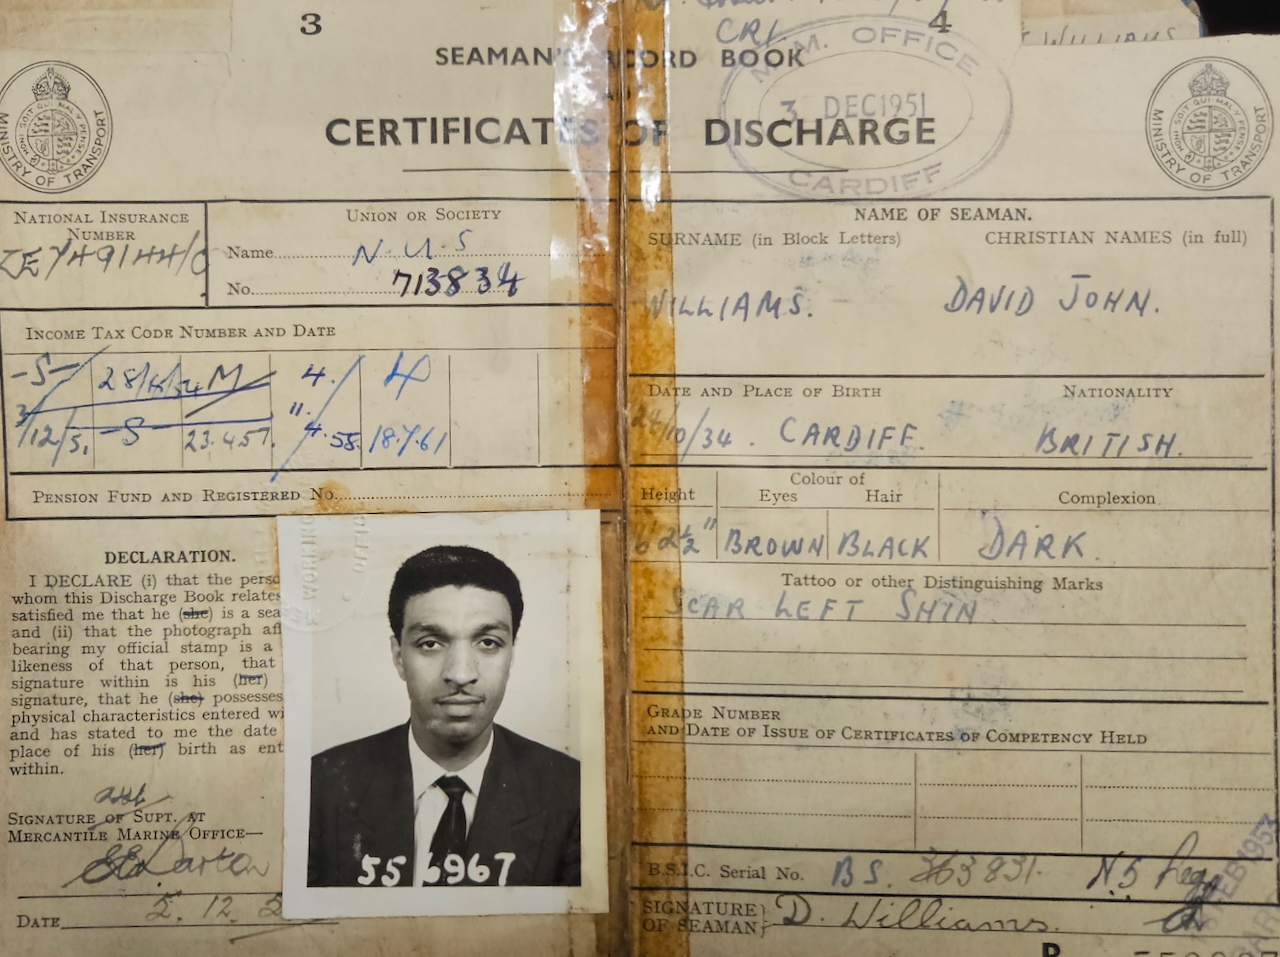 3
4
CRL
WILLIAMS
SEAMAN'S RECORD BOOK
CERTIFICATES OF DISCHARGE
M.M. OFFICE
3 DEC 1951
CARDIFF
MINISTRY OF TRANSPORT
HONI SOIT QUI MAL Y PENSE
MINISTRY OF TRANSPORT
HONI SOIT QUI MAL Y PENSE
NATIONAL INSURANCE
NUMBER
UNION OR SOCIETY
Name N.U.S
No. 713834
INCOME TAX CODE NUMBER AND DATE
-S- M 4. 4
-S- 23.4.57. 4.58 18.7.61
PENSION FUND AND REGISTERED No.
DECLARATION.
I DECLARE (i) that the perso
whom this Discharge Book relates
satisfied me that he (she) is a sea
and (ii) that the photograph aff
bearing my official stamp is a
likeness of that person, that
signature within is his (her)
signature, that he (she) possesses
physical characteristics entered wi
and has stated to me the date
place of his (her) birth as ent
within.
SIGNATURE OF SUPT. AT
MERCANTILE MARINE OFFICE—
DATE 5.12.5
55 6967
NAME OF SEAMAN.
SURNAME (in Block Letters) CHRISTIAN NAMES (in full)
WILLIAMS. DAVID JOHN.
DATE AND PLACE OF BIRTH NATIONALITY
24/10/34. CARDIFF. BRITISH.
Height Colour of Eyes Hair Complexion
6' 2½" BROWN BLACK DARK.
Tattoo or other Distinguishing Marks
SCAR LEFT SHIN
GRADE NUMBER
AND DATE OF ISSUE OF CERTIFICATES OF COMPETENCY HELD
B.S.I.C. Serial No. BS. 363831.
SIGNATURE OF SEAMAN D. Williams.
FEB 1953
R